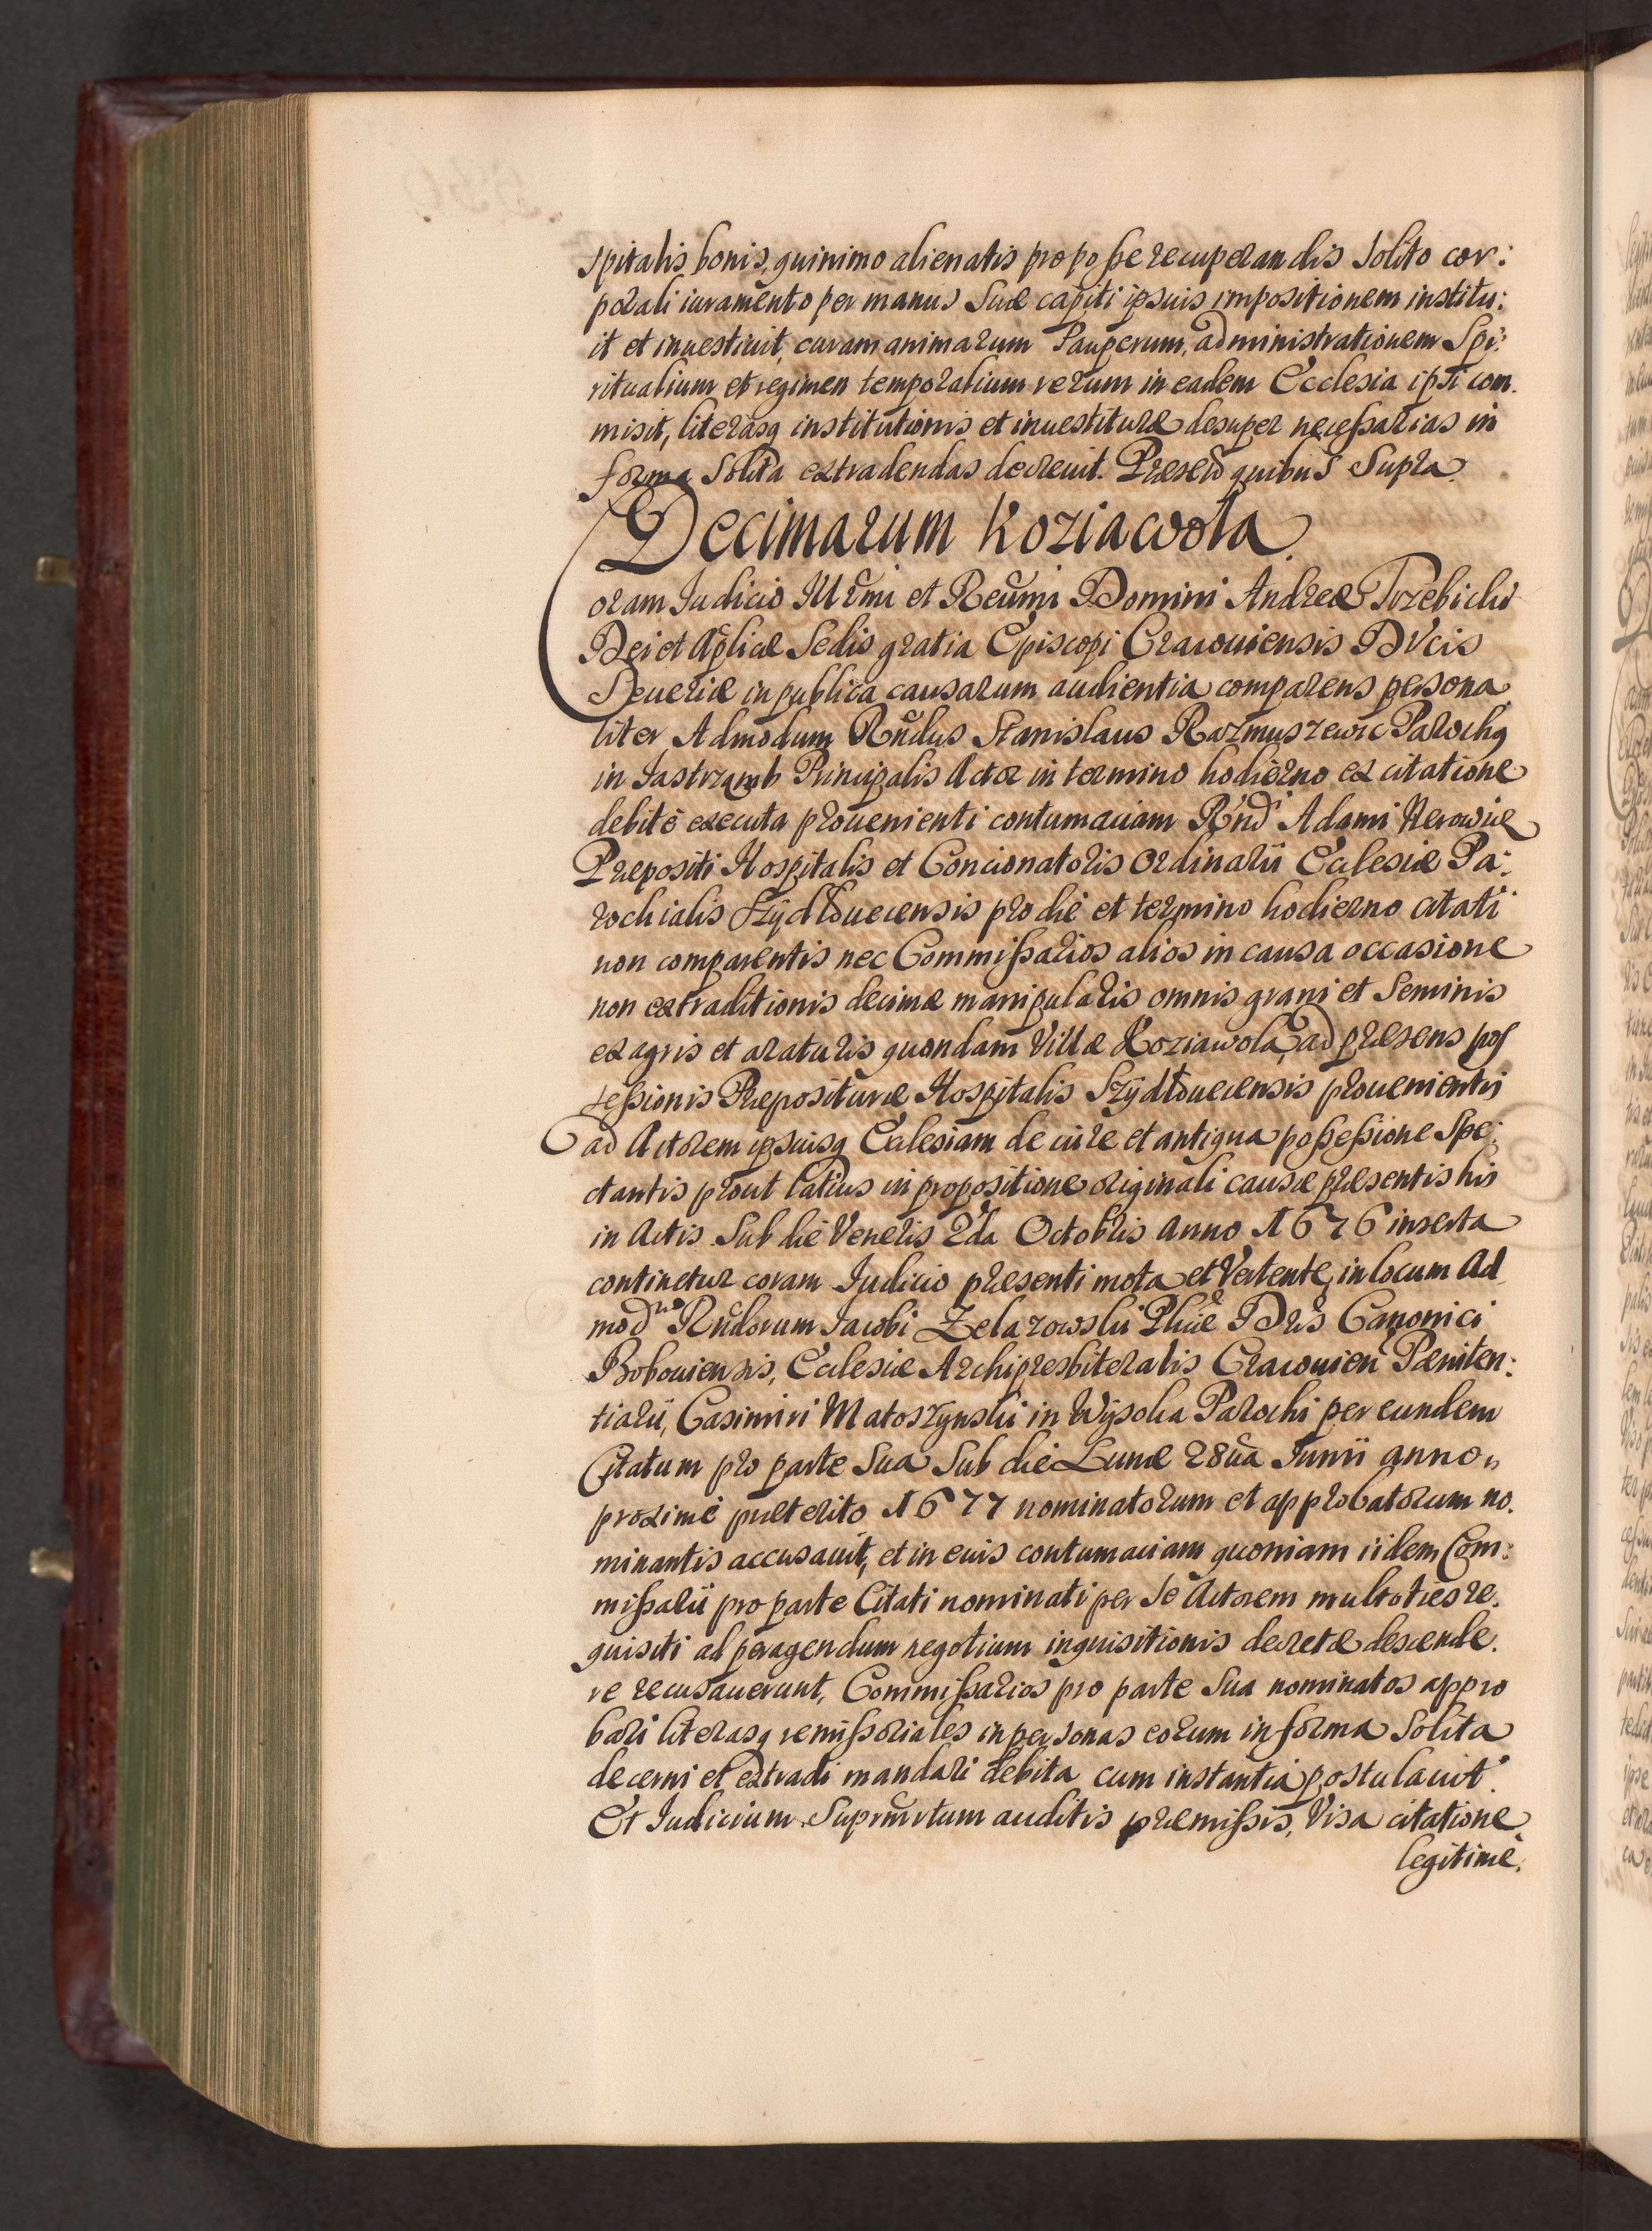 spitalis bonis, quinimo alienatis pro posse recuperandis solito cor:
porali iuramento per manus suæ capiti ipsuis impositionem institu:
it et inuestiuit, curam animarum Pauperum, administrationem Spi:
ritualium et regimen temporalium rerum in eadem Ecclesia ipsi com
misit, literasq institutionis et inuestituræ desuper necessarias in
forma solita extradendas decreuit. Præsen quibus supra.
Decimarum Koziawola
Coram Judicio Illrmi et Reumi Domini Andreæ Trzebicki
Dei et Aplicæ Sedis gratia Episcopi Cracouiensis Ducis
Seueriæ in publica causarum audientia comparens persona
liter Admodum Rndus Stanislaus Razmuszewic Parochq
in Jastrzamb Principalis Actor in termino hodierno ex citatione
debitè executa prouenienti contumaciam Rnd Adami Nerowicz
Præpositi Hospitalis et Concionatoris Ordinarii Ecclesiæ Pa:
rochialis Szydłouecensis pro die et termino hodierno citati
non comparentis nec Commissarios alios in causa occasione
non extraditionis decimæ manipularis omnis grani et Seminis
ex agris et araturis quondam Villæ Koziawola, ad præsens pos
sessionis Præposituræ Hospitalis Szydłouecensis prouenientis
ad Actorem ipsuisq Ecclesiam de iure et antiqua possessione Spe:
ctantis prout latius in propositione originali causæ præsentis his
in Actis sub die Veneris 2da Octobris Anno 1676 inserta
continetur coram Judicio præsenti mota et Vertente, in locum Ad
mod Rndorum Jacobi Zelazowski Phiæ Dris Canonici
Bobouiensis, Ecclesiæ Archipresbiteralis Cracouien Pæniten:
tiarii, Casimiri Matoszynski in Wysoka Parochi per eundem
Citatum pro parte sua sub die Lunæ 28ua Junii anno
proximè præterito 1677 nominatorum et approbatorum no.
minantis accusauit, et in euis contumaciam quoniam iidem Com:
missarii pro parte Citati nominati per se Actorem multoties re.
quisiti ad peragendum negotium inquisitionis decretæ descende.
re recusauerunt, Commissarios pro parte sua nominatos appro
bari literasq remissoriales in personas eorum in forma solita
decerni et extradi mandari debita cum instantia postulauit.
Et Judicium suprmrtum auditis præmissis, Visa citatione
legitimè.